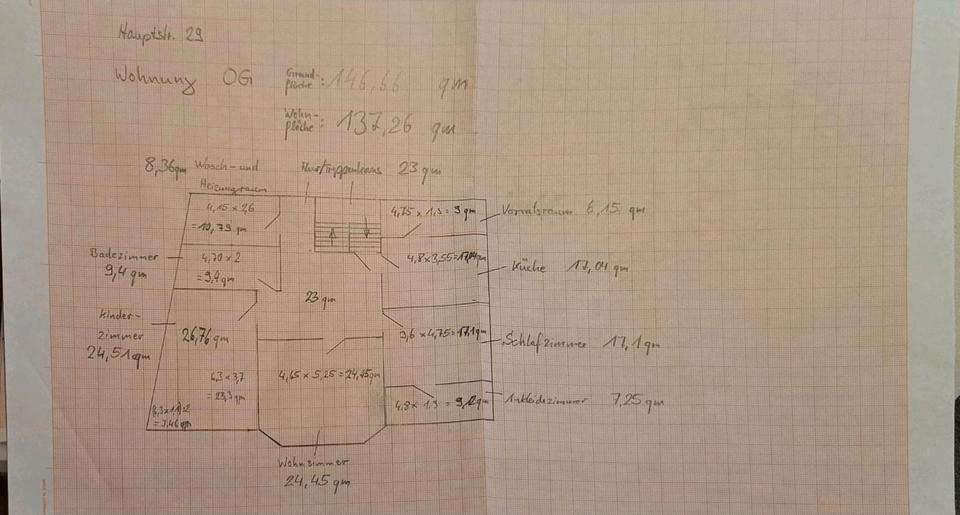 Hauptstr. 29
Wohnung OG
Grund-
fläche: 146,66 qm
Wohn-
fläche: 137,26 qm
8,36qm Wasch- und
Heizungsraum
Flur/Treppenhaus 23 qm
4,15 x 2,6
= 10,79 qm
4,75 x 1,3 = 9 qm
Vorratsraum 6,15 qm
Badezimmer
9,4 qm
4,70 x 2
= 9,4 qm
4,8 x 3,55 = 17,04qm
Küche 17,04 qm
23 qm
Kinder-
zimmer
24,51 qm
26,76 qm
3,6 x 4,75 = 17,1qm
Schlafzimmer 17,1 qm
6,3 x 3,7
= 23,3 qm
4,65 x 5,25 = 24,45qm
= 3,46 qm
4,8 x 1,9 = 9,12qm
Ankleidezimmer 7,25 qm
Wohnzimmer
24,45 qm